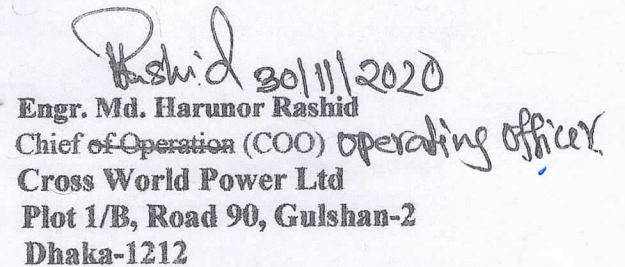 Rashid 30/11/2020
Engr. Md. Harunor Rashid
Chief of Operation (COO) operating officer
Cross World Power Ltd
Plot 1/B, Road 90, Gulshan-2
Dhaka-1212